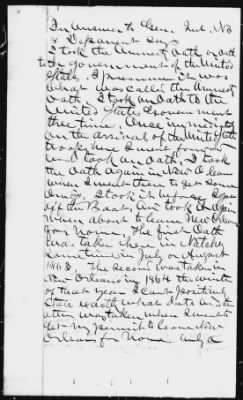 In Answer to Gen. Int. No
5 Deponent says
I took the Amnesty Oath or Oath
to the government of the United
States. I presume it was
what was called the Amnesty
Oath. I took an Oath to the
United States government
three times. Once in Natchez
on the arrival of the United States
troops here I went forward
and took an Oath. I took
the Oath again in New Orleans
when I went there to get some
I took it before I got
off the Boat, and took it again
when about to leave New Orleans
for home. The first Oath
was taken here in Natchez
sometime in July or August
1863. The second was taken in
New Orleans in 1864 the
of that year I can't positively
state exactly what date as the
other was taken when I went to
get my permit to leave New
Orleans for home